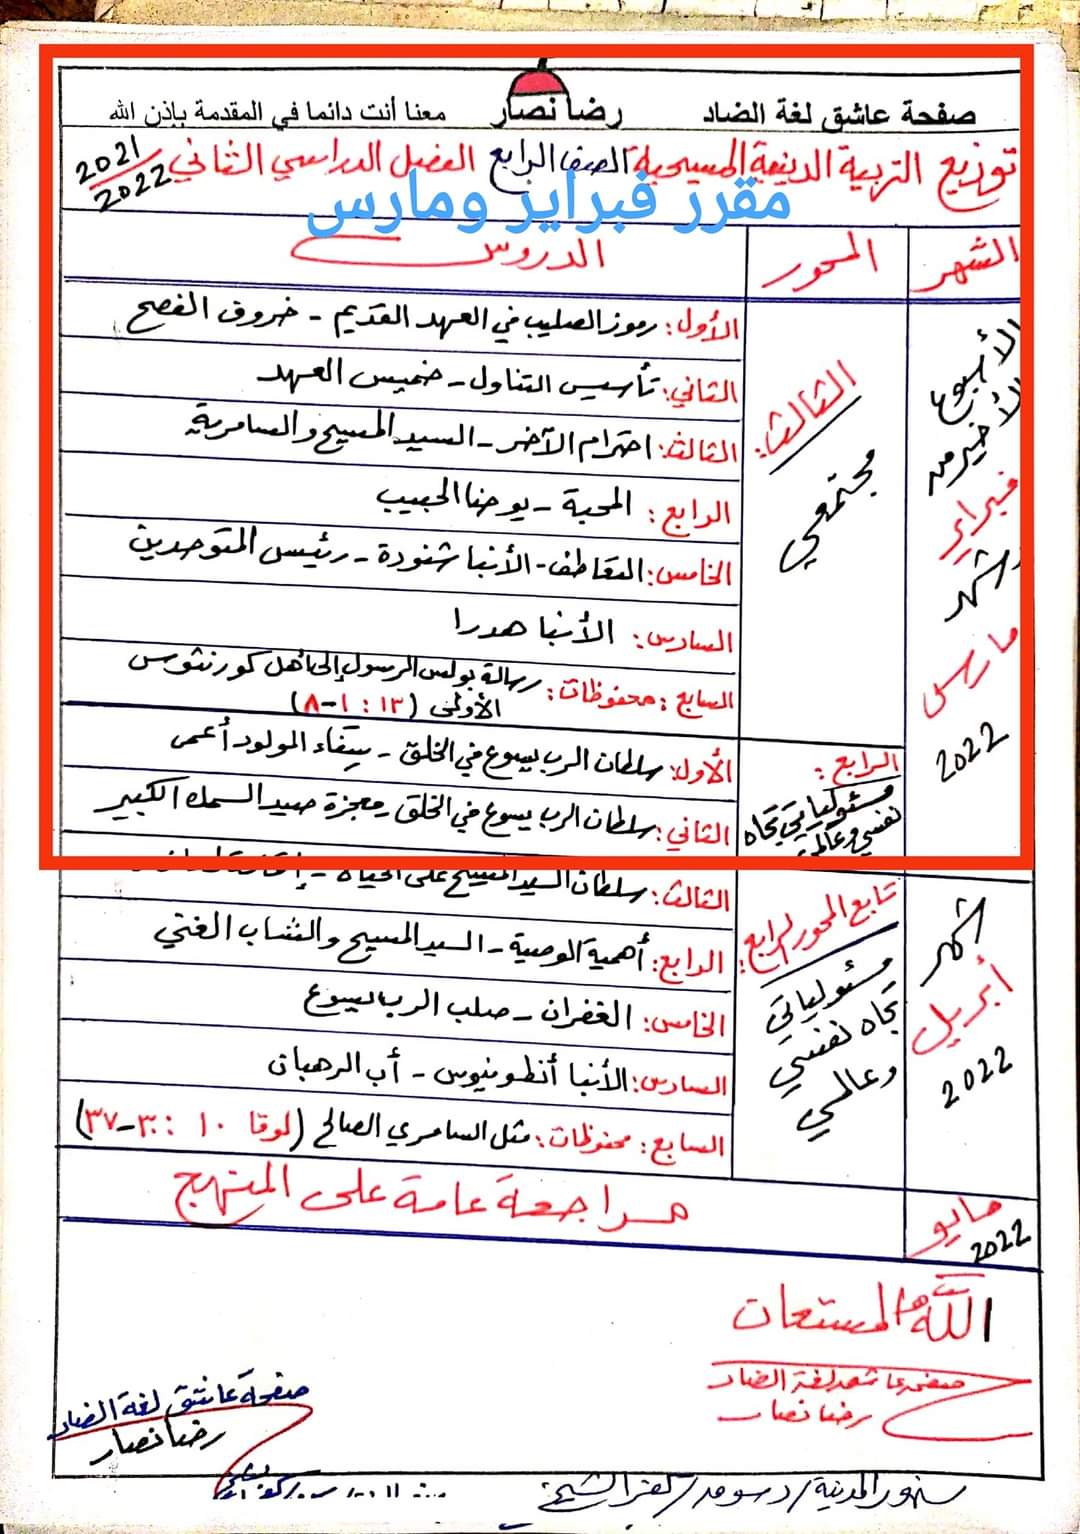 صفحة عاشق لغة الضاد رضا نصار معنا أنت دائما في المقدمة بإذن الله
توزيع التربية الدينية المسيحية الصف الرابع الفصل الدراسي الثاني 2021/2022
مقرر فبراير ومارس
الشهر المحور الدروس
الأسبوع الأخير من فبراير
شهر مارس 2022
الثالث: مجتمعي
الأول: رموز الصليب في العهد القديم - خروف الفصح
الثاني: تأسيس التناول - خميس العهد
الثالث: احترام الآخر - السيد المسيح والسامرية
الرابع: المحبة - يوحنا الحبيب
الخامس: التعاطف - الأنبا شنودة - رئيس المتوحدين
السادس: الأنبا هدرا
السابع: محفوظات: رسالة بولس الرسول إلى أهل كورنثوس
الأولى (١٣ : ١-٨)
الرابع:
مسئولياتي تجاه
نفسي وعالمي
الأول: سلطان الرب يسوع في الخلق - شفاء المولود أعمى
الثاني: سلطان الرب يسوع في الخلق - معجزة صيد السمك الكبير
شهر أبريل 2022
تابع المحور الرابع:
مسئولياتي
تجاه نفسي
وعالمي
الثالث: سلطان السيد المسيح على الحياة -
الرابع: أهمية الوصية - السيد المسيح والشاب الغني
الخامس: الغفران - صلب الرب يسوع
السادس: الأنبا أنطونيوس - أب الرهبان
السابع: محفوظات: مثل السامري الصالح (لوقا ١٠ : ٣٠-٣٧)
مايو 2022
مراجعة عامة على المنهج
الله المستعان
صفحة عاشق لغة الضاد
رضا نصار
صفحة عاشق لغة الضاد
رضا نصار
سنهور المدينة / دسوق / كفر الشيخ